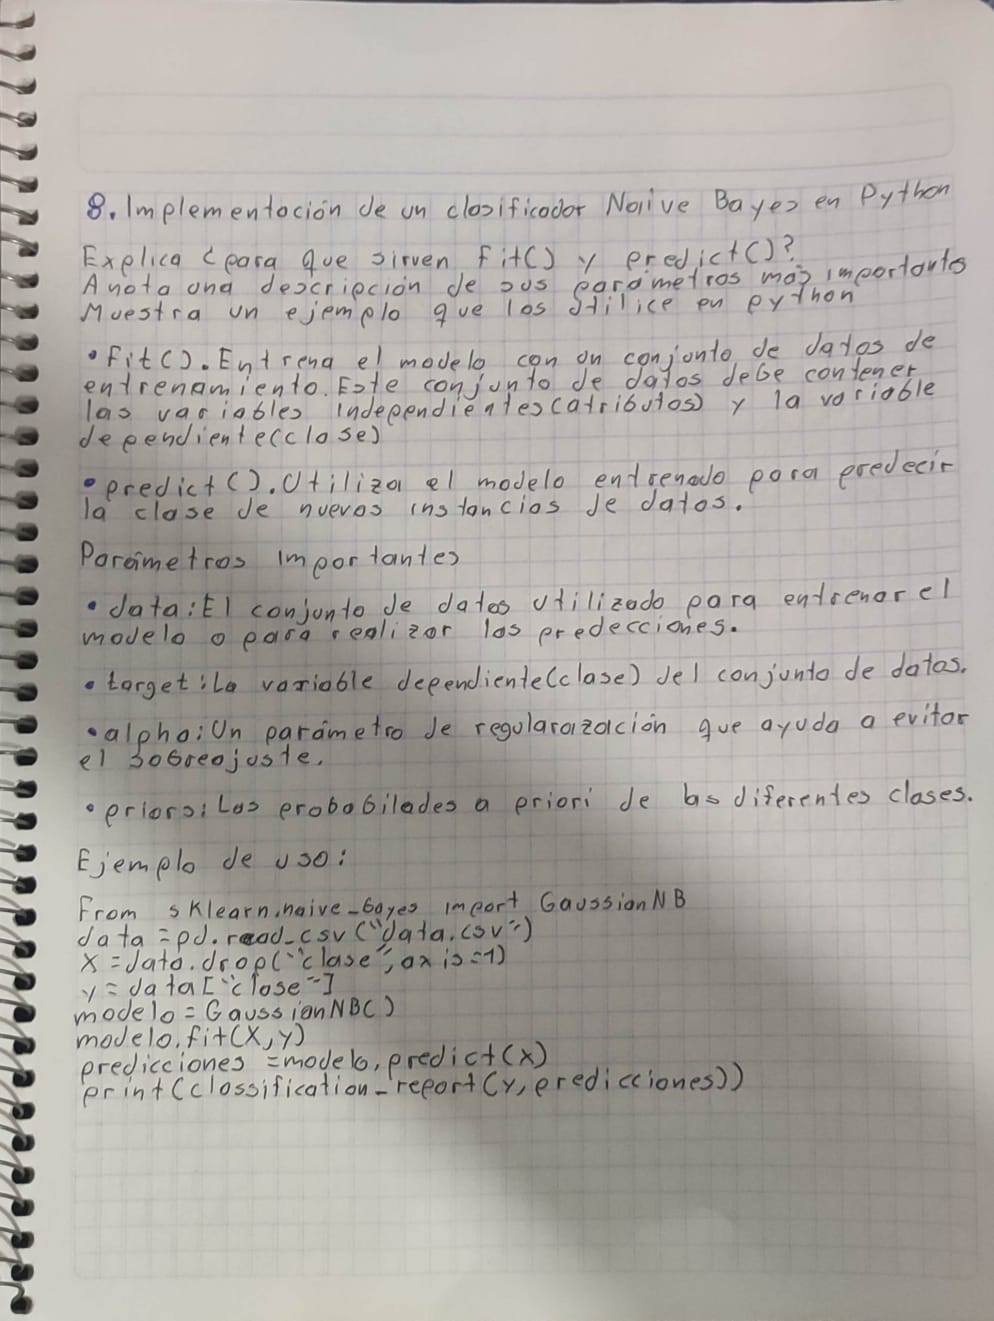 8. Implementación de un clasificador Naive Bayes en Python
Explica ¿para que sirven fit() y predict()?
Anota una descripción de sus parámetros más importants
Muestra un ejemplo que los utilice en python
• fit(). Entrena el modelo con un conjunto de datos de
entrenamiento. Este conjunto de datos debe contener
las variables independientes(atributos) y la variable
dependiente(clase)
• predict(). Utiliza el modelo entrenado para predecir
la clase de nuevas instancias de datos.
Parámetros importantes
• data: El conjunto de datos utilizado para entrenar el
modelo o para realizar las predecciones.
• target: La variable dependiente(clase) del conjunto de datos.
• alpha: Un parámetro de regulararzación que ayuda a evitar
el sobreajuste.
• priors: Las probabilades a priori de las diferentes clases.
Ejemplo de uso:
From sklearn.naive_bayes import GaussianNB
data = pd.read_csv("data.csv")
X = data.drop("clase", axis=1)
y = data["clase"]
modelo = GaussianNB()
modelo.fit(X,y)
predicciones = modelo.predict(X)
print(classification_report(y, predicciones))